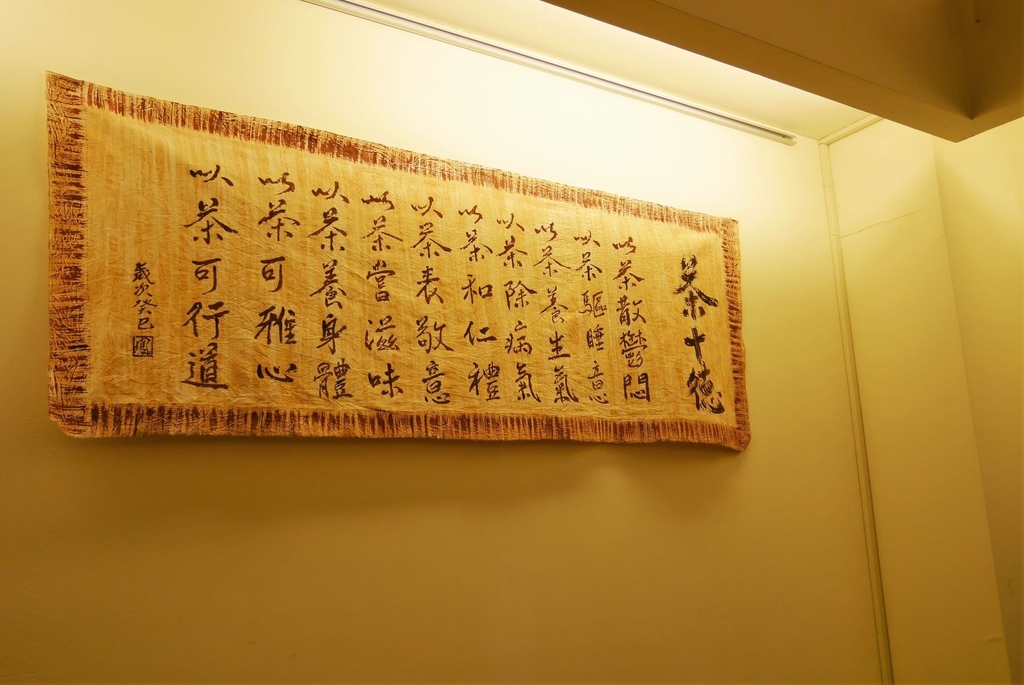 茶十德
以茶散鬱悶
以茶驅睡意
以茶養生氣
以茶除病氣
以茶和仁禮
以茶表敬意
以茶嘗滋味
以茶養身體
以茶可雅心
以茶可行道
歲次癸巳